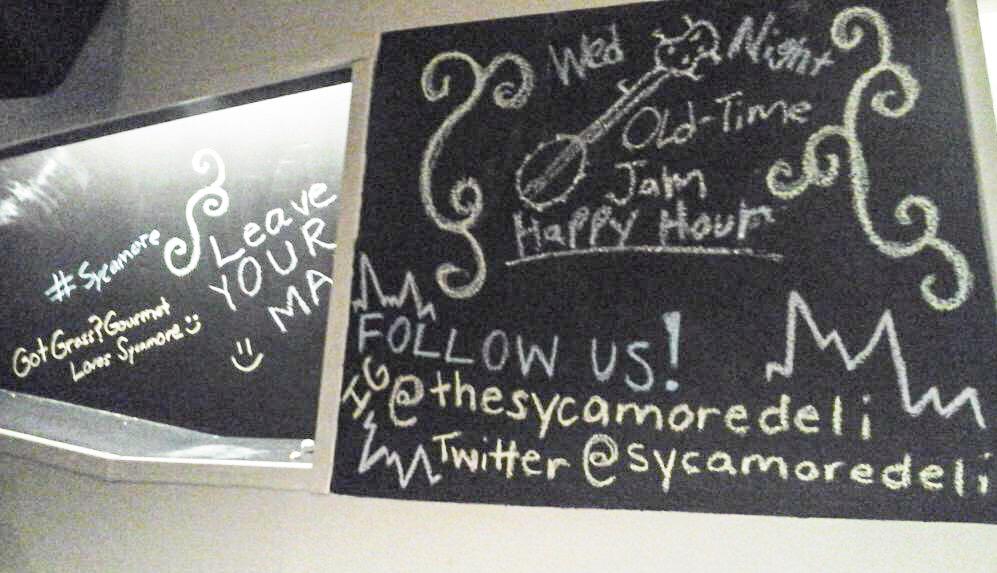 #Sycamore
Leave
YOUR
MA
Got Grass? Gourmet
Loves Sycamore
Wed Night
Old-Time
Jam
Happy Hour
FOLLOW US!
IG @thesycamoredeli
Twitter @sycamoredeli